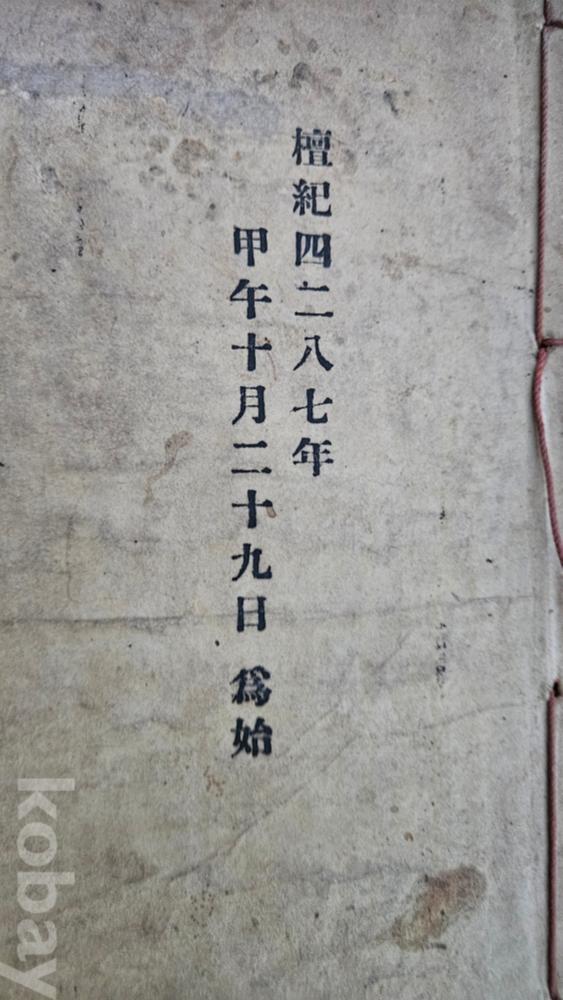 檀紀四二八七年
甲午十月二十九日 爲始
kobay